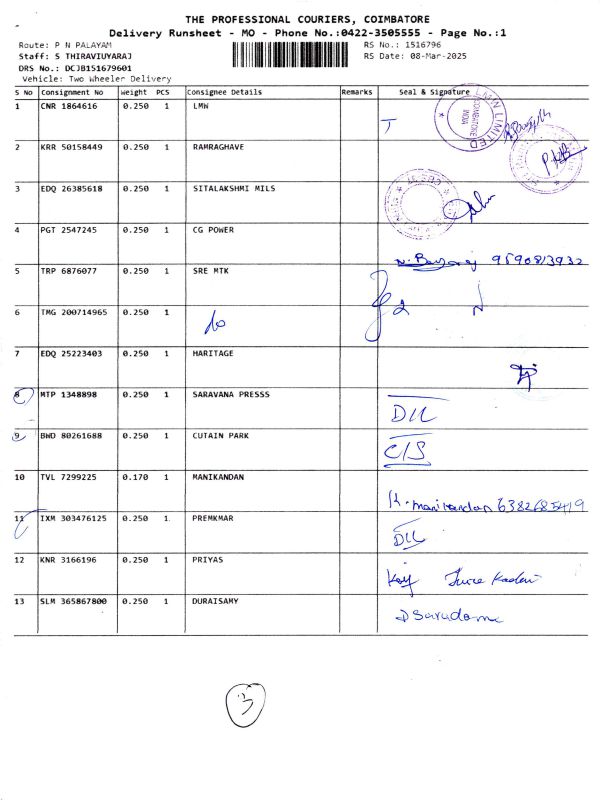 THE PROFESSIONAL COURIERS, COIMBATORE
Delivery Runsheet - MO - Phone No.:0422-3505555 - Page No.:1
Route: P N PALAYAM RS No.: 1516796
Staff: S THIRAVIUYARAJ RS Date: 08-Mar-2025
DRS No.: DCJB151679601
Vehicle: Two Wheeler Delivery
S No Consignment No Weight PCS Consignee Details Remarks Seal & Signature
1 CNR 1864616 0.250 1 LMW
LMW LIMITED COIMBATORE INDIA
2 KRR 50158449 0.250 1 RAMRAGHAVE
3 EDQ 26385618 0.250 1 SITALAKSHMI MILS
4 PGT 2547245 0.250 1 CG POWER
9590813932
5 TRP 6876077 0.250 1 SRE MTK
6 TMG 200714965 0.250 1 do
7 EDQ 25223403 0.250 1 HARITAGE
8 MTP 1348898 0.250 1 SARAVANA PRESSS
D/L
9 BWD 80261688 0.250 1 CUTAIN PARK
C/S
10 TVL 7299225 0.170 1 MANIKANDAN
K. manikandan 6382685419
11 IXM 303476125 0.250 1 PREMKMAR
D/L
12 KNR 3166196 0.250 1 PRIYAS
13 SLM 365867800 0.250 1 DURAISAMY
3